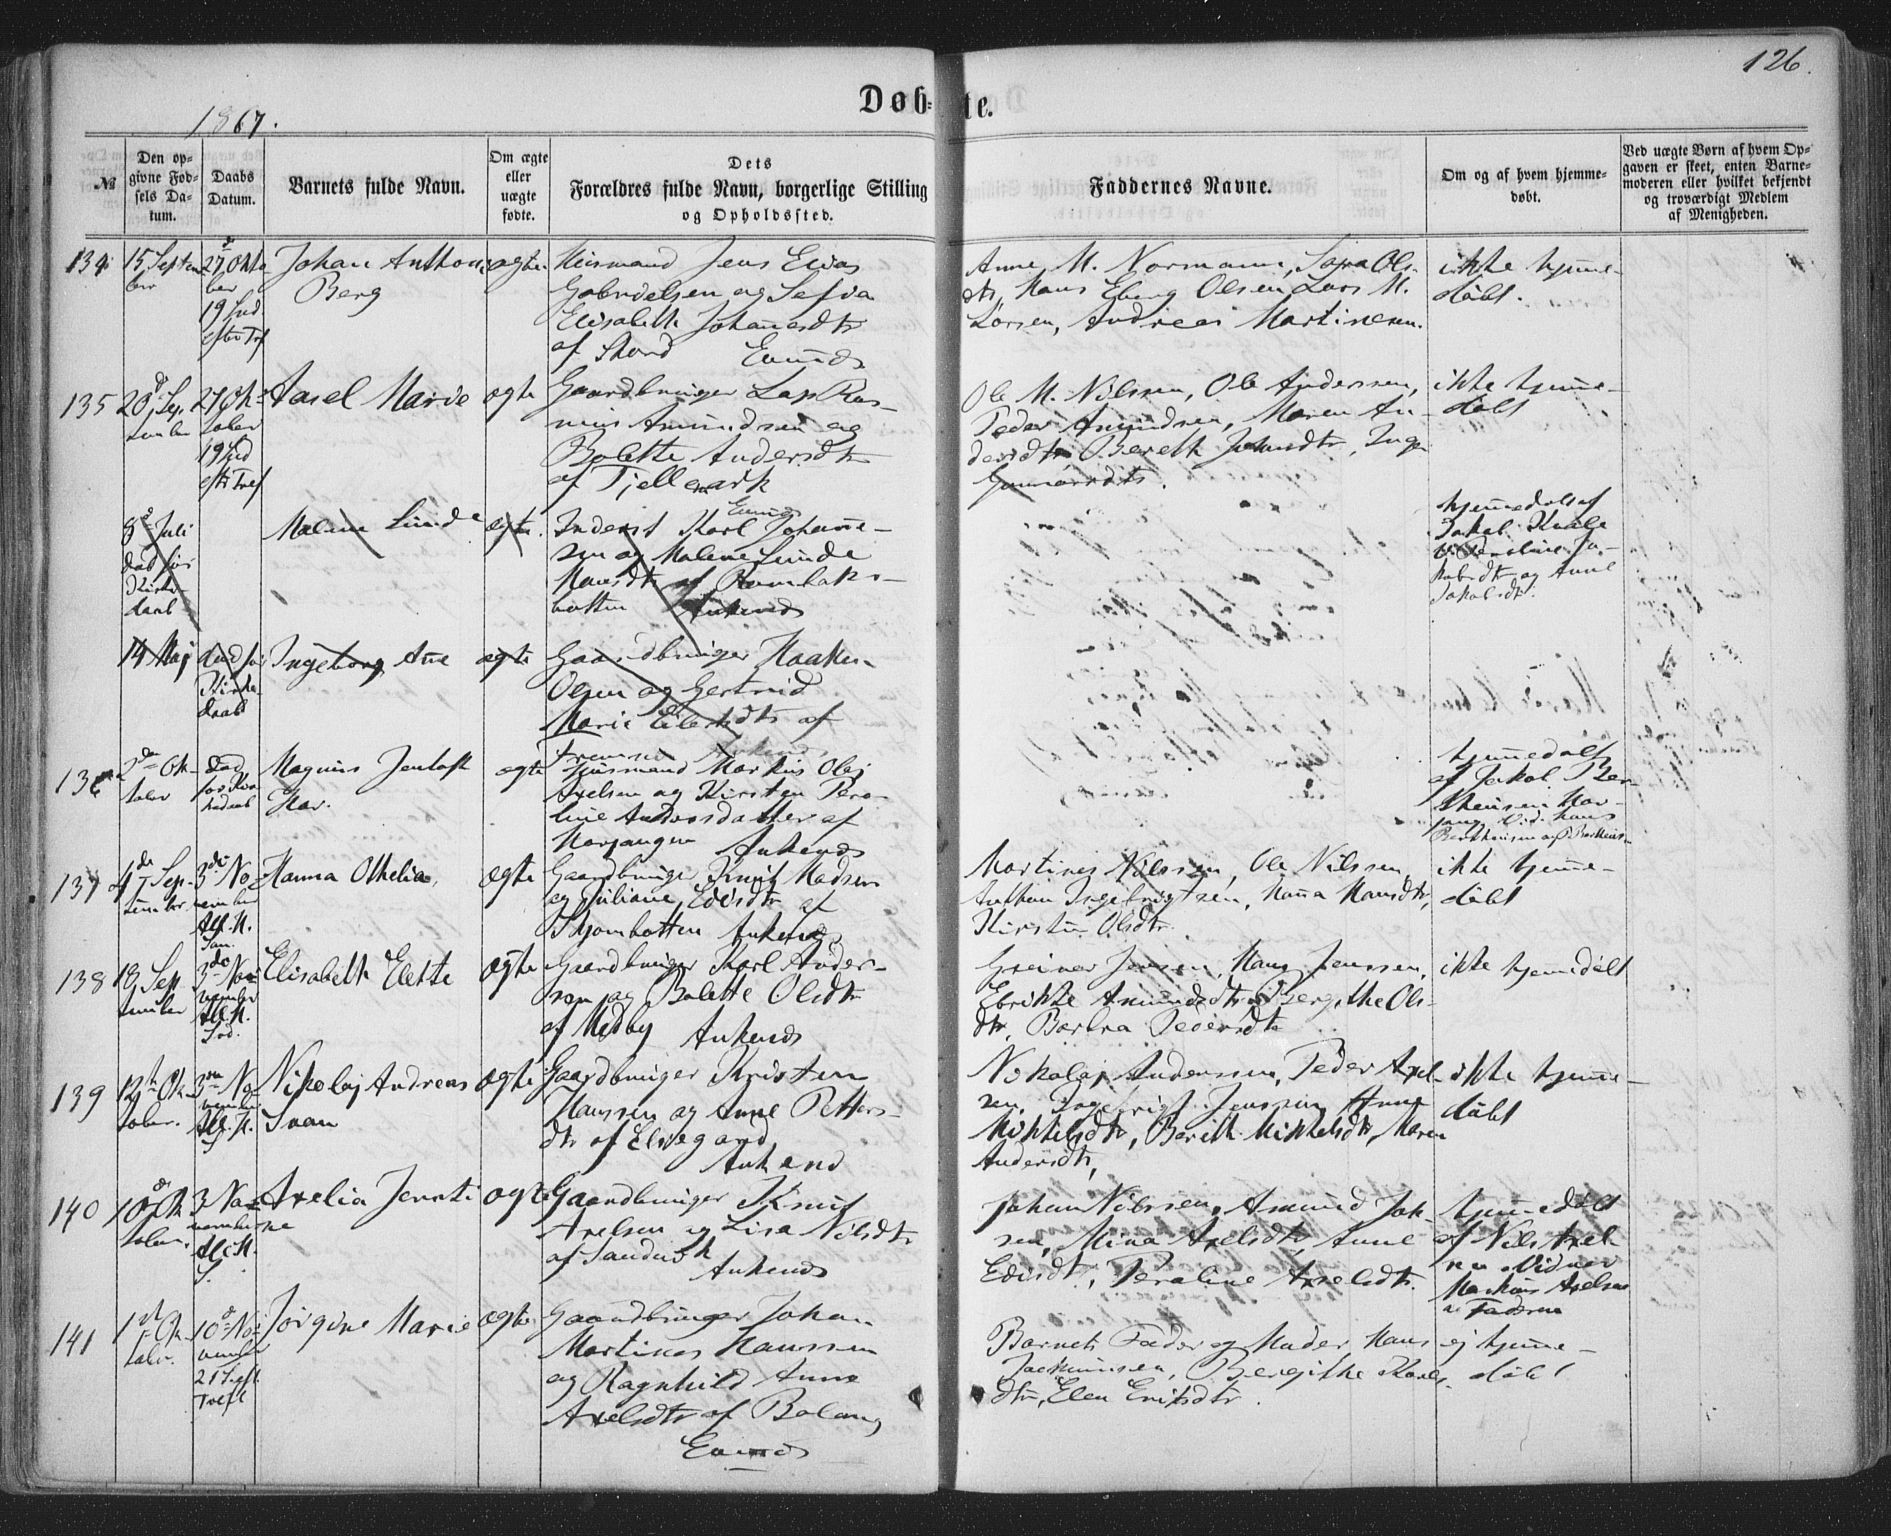 126.
1867.
Døb-
te.
№
Den op-
givne Fød-
sels Da-
tum.
Daabs
Datum.
Barnets fulde Navn.
Om ægte
eller
uægte
fødte.
Dets
Forældres fulde Navn, borgerlige Stilling
og Opholdssted.
Faddernes Navne.
Om og af hvem hjemme-
døbt.
Ved uægte Børn af hvem Op-
gaven er skeet, enten Barne-
moderen eller hvilket bekjendt
og troværdigt Medlem
af Menigheden.
134
15 Septem
ber
27 Okto
ber
19 Snd
efter Tref
Johan Anthon
Berg
ægte
Huusmand Jens Elias
Gabrielsen og Sefia
Elisabeth Johansdtr
af Strand
Anne M. Normann, Sofia Ols-
dtr, Hans Eberg Olsen Lars M.
Larsen, Andreas Martinesen.
ikke hjemme-
døbt.
135
20 Sep
tember
27 Ok-
tober
19 Snd
eftr Tref
Aasel Marie
ægte
Gaardbruger Lars Ras-
mus Amundsen og
Bolette Andersdtr
af Tjellemark
Ole M. Nilssen, Ole Andersen,
Peder Amundsen, Maren An-
dersdtr Bereth Johnsdtr, Inger
Gunnarsdtr.
ikke hjemme-
døbt
8 Juli
død før
Kirke-
daab
Malene Lunde
ægte
Inderst Karl Johanne-
sen og Malene Lunde
Hansdtr af Rombaks-
botten Ankends
hjemmedøbt af
Jakob Kvale
Jakobsdtr og Anne
Jakobsdtr.
14 Maj
død før
Kirke-
daab
Ingeborg Ane
ægte
Gaardbruger Haaken
Olsen og Gertrud
Marie Eilertsdtr af
Ankends
136
2 Ok-
tober
død
før Kir
kedaab
Magnus Jentoft
Har.
ægte
Huusmand Markus Olej
Axelsen og Kirsten Pero-
line Andersdatter af
Herjangen Ankends
hjemmedøbt
af Jakob Ber-
theusen Her-
jang Vid. Hans
Bertheusen og P. Bertheus-
137
4 Sep-
tember
3 No-
vember
All. H.
Hanna Othelia
ægte
Gaardbruger Knut Madsen
og Juliane Edisdtr af
Skjombotten Ankends
Martines Nilssen, Ole Nilssen,
Anthon Ingebrigtsen, Hanna Hansdtr,
Kirstin Olsdtr
ikke hjemme-
døbt
138
18 Sep
tember
3 No-
vember
All. H.
Elisabeth Elette
ægte
Gaardbruger Karl Ander-
sen og Bolette Olsdtr
af Medby Ankends
Greiner Jensen, Hans Jenssen,
Ebrikke Amundsdtr, Bergithe Ols-
dtr, Barbra Pedersdtr
ikke hjemmedøbt
139
12 Ok
tober.
3 No-
vember
All. H.
Nikolaj Andreas
Svan
ægte
Gaardbruger Kristen
Hanssen og Anne Petters-
dtr af Elvegard
Ankend
Nikolaj Anderssen, Peder Axel-
sen, Ingebrigt Jenssen, Anne
Mikkelsdtr, Bereth Mikkelsdtr, Maren
Andersdtr,
ikke hjemme-
døbt
140
10 Ok
tober.
3 No-
vember
All. H.
Axelia Jensti
ne
ægte
Gaardbruger Knut
Axelsen og Lisa Nilsdtr
af Sandvik
Ankends
Johan Nilssen, Amund Joh-
sen, Mina Axelsdtr, Anne
Edisdtr, Peraline Axelsdtr.
hjemmedøbt
af Nils Axel
sen Vidner
Markus Axelsen
og Faderen
141
1 Ok
tober.
10 No-
vember
21 S. eft.
Tref
Jørgine Marie
ægte
Gaardbruger Johan
Martines Hanssen
og Ragnhild Anna
Axelsdtr af Balang
Barnets Fader og Moder, Hans
Joakimsen, Bergithe Karls-
dtr, Elen Eriksdtr.
ej hjemme-
døbt